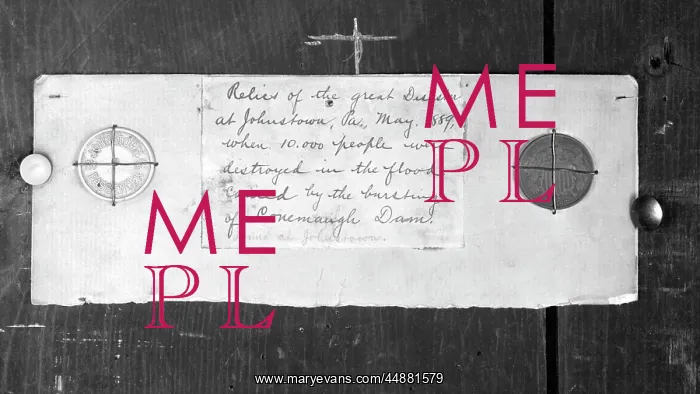 Relics of the great Disaster
at Johnstown, Pa., May. 1889,
when 10.000 people were
destroyed in the flood
Caused by the bursting
of Conemaugh Dam.
at Johnstown.
ME
PL
ME
PL
www.maryevans.com/44881579